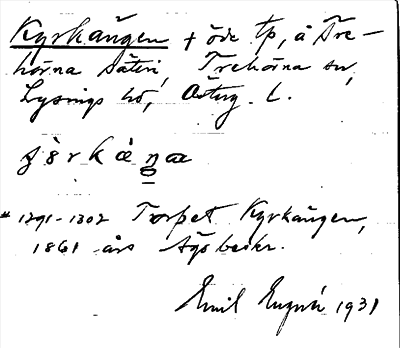 Kyrkängen + öde tp, å Tre-
hörna säteri, Trehörna sn,
Lysings hd, Österg. l.
* 1291-1302 Torpet Kyrkängen,
1861 års Ägobeskr.
Emil 1931